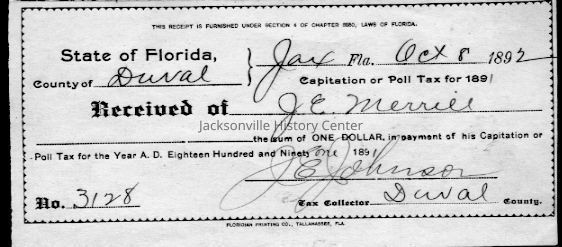 THIS RECEIPT IS FURNISHED UNDER SECTION 4 OF CHAPTER LAWS OF FLORIDA.
State of Florida, Jax Fla. Oct 8 1892
County of Duval Capitation or Poll Tax for 1891
Received of J. E. Merrill
Jacksonville History Center
the sum of ONE DOLLAR, in payment of his Capitation or
Poll Tax for the Year A. D. Eighteen Hundred and Ninety one 1891
J E Johnson
No. 3128 Tax Collector Duval County.
FLORIDIAN PRINTING CO., TALLAHASSEE, FLA.